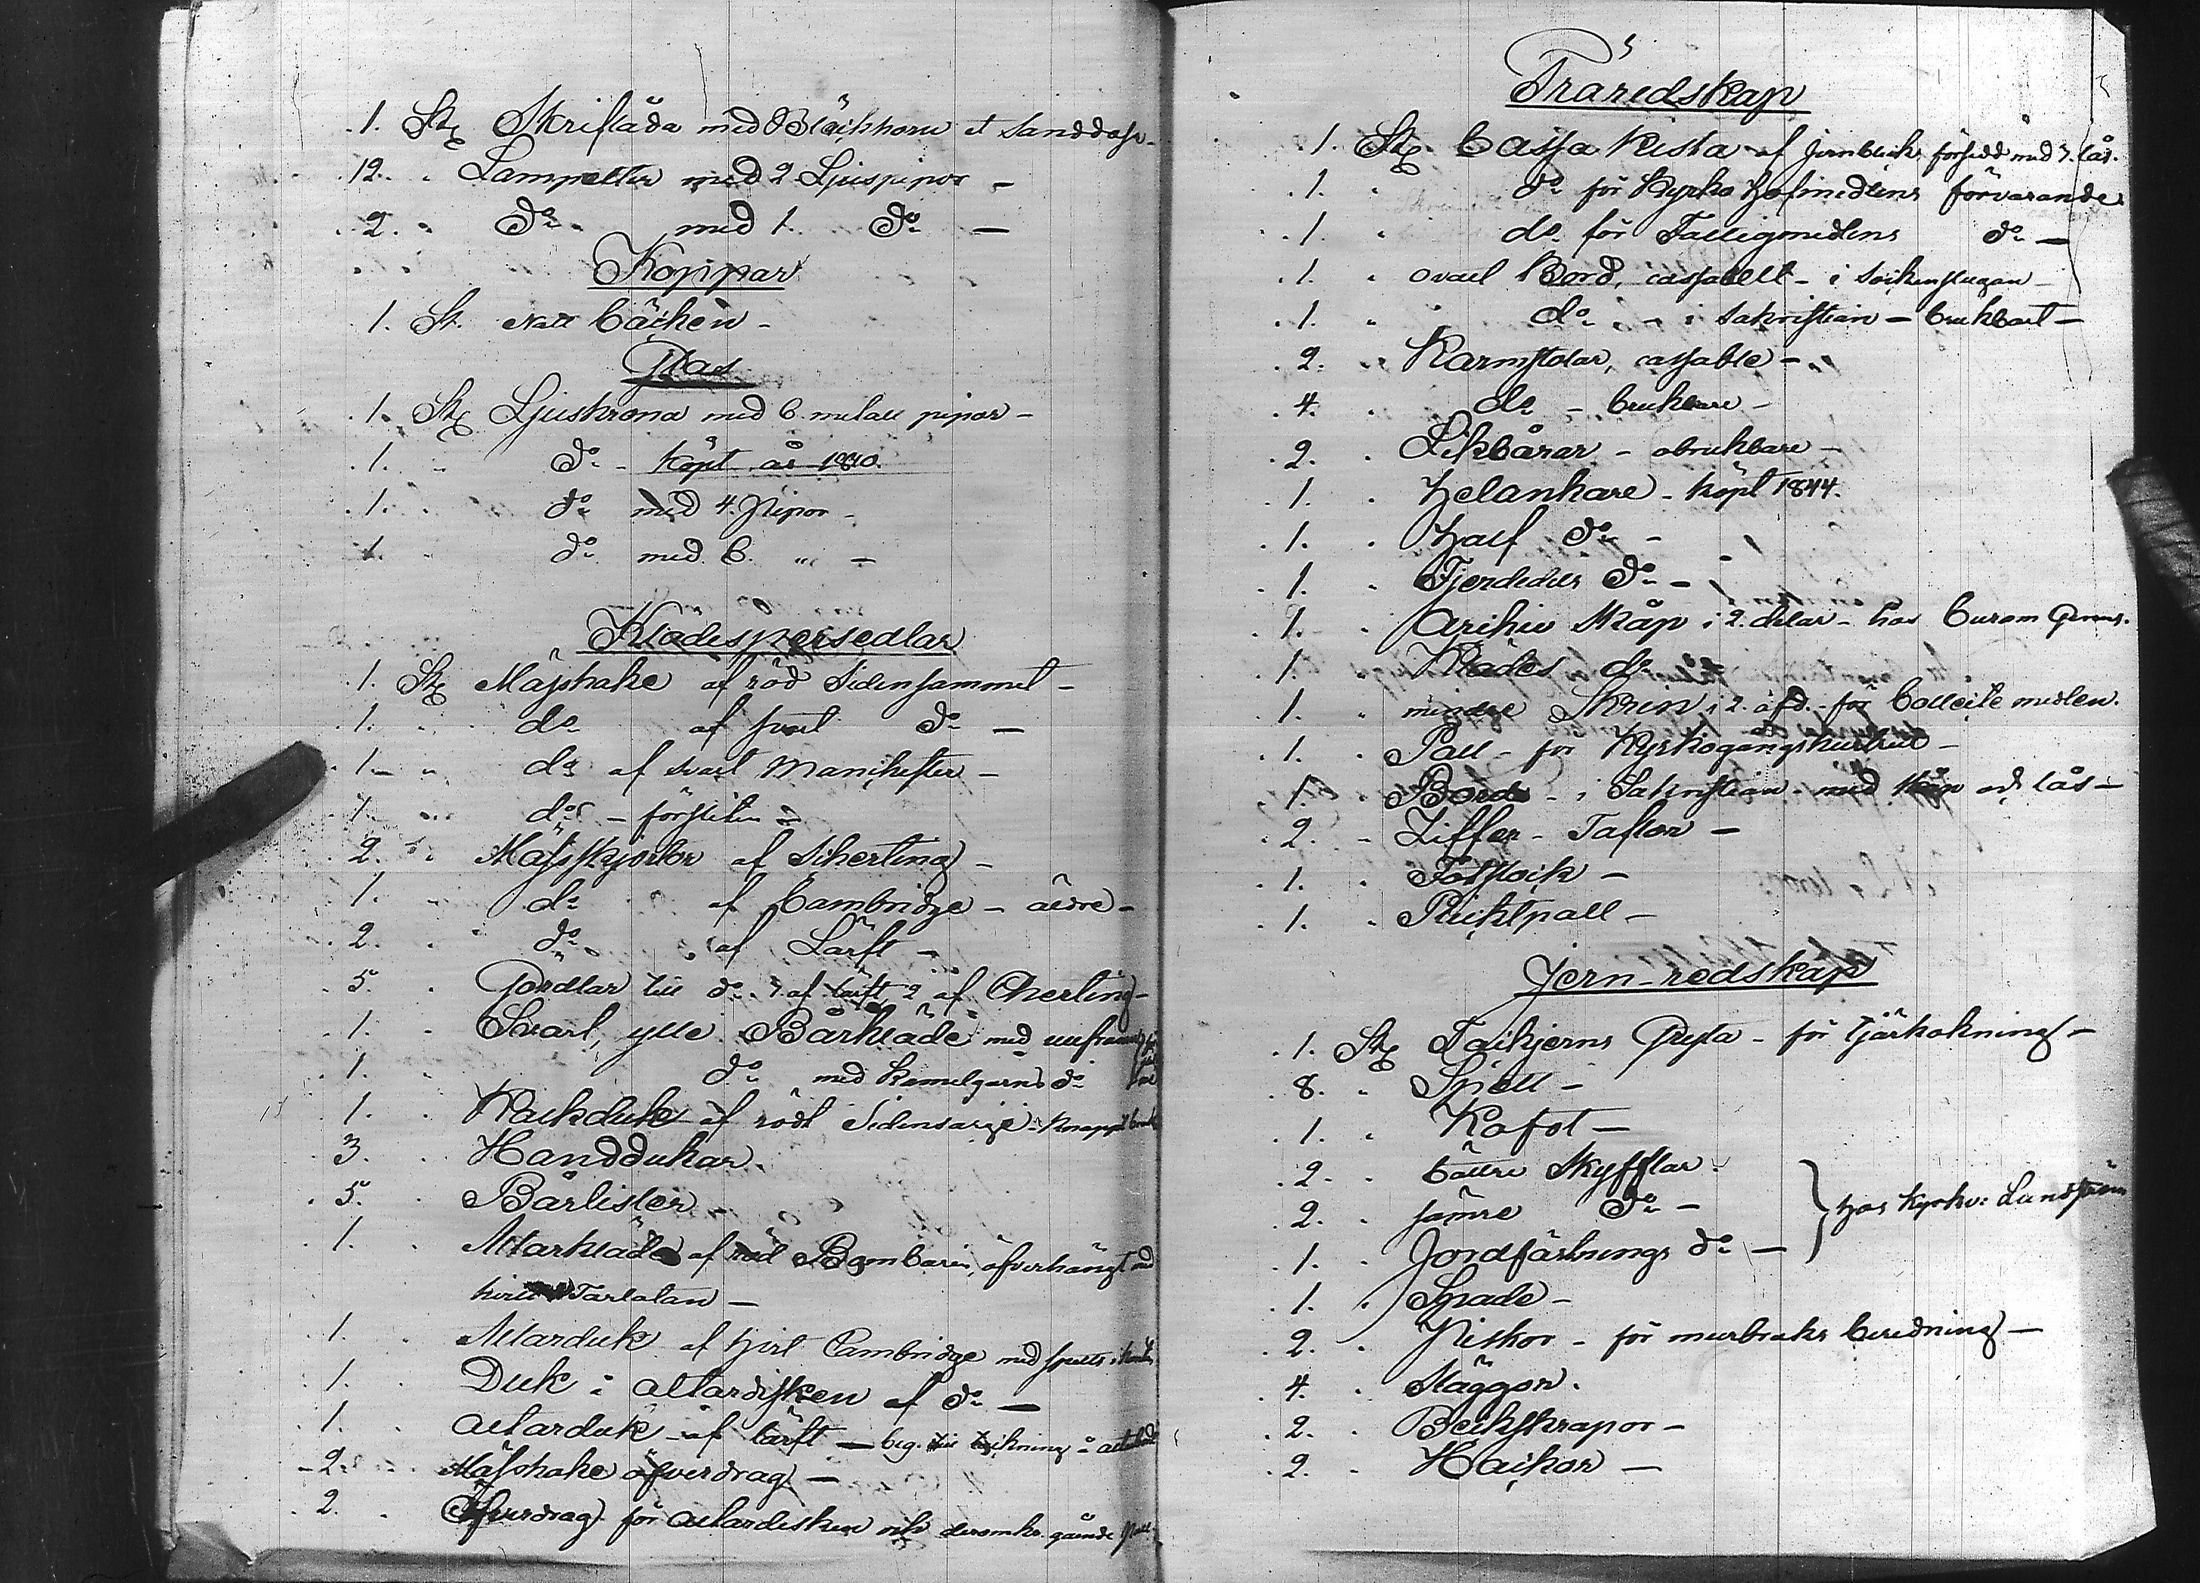 1. St. Skriflåda med Bläckhorn et Sanddosa
12. " Lampetter med 2 Ljuspipor –
2. " Do med 1. Do –
Koppar
1. St. Natt bäcken –
Glas
1. St. Ljuskrona med 6. metall pipor –
1. " Do – köpt år 1840.
1. " do med 4. Pipor –
1 " do med 6. " –
Klädespersedlar
1. St. Mässhake af röd Sidensammet –
1. " do af svart do –
1 – " do af svart Manchester –
1 " do – försliten –
2. " Mässskjortor af Scherting –
1. " do af Cambridge – äldre –
2. " do af Lärft –
5. " Gördlar till do 3 af lärft, 2 af Cherting –
1. " Svart, ylle Bårkläde med
1. " do med Kamelgarns do
1. " Kalkduk af rödt Sidensarge
3. " Handdukar.
5. " Bårlister
1. " Altarkläde af röd Bombasin, öfverhängt med
hvitt Tarlatan –
1. " Altarduk af hvit Cambridge med spets
1. " Duk i altardisken af do –
1. " Altarduk – af lärft – beg. till täckning å
2. " Mässhake öfverdrag –
2. " Öfverdrag för Altardisken och deromkr. gående
5
Träredskap
1. St. Cassa Kista af Jernbleck försedd med 3. lås.
1. " do för Kyrko Hofmedlens förvarande
1. " do för Fattigmedlens do –
1. " ovalt Bord, cassabelt – i Sockenstugan –
1. " do – i Sakristian – brukbart –
2. " Karmstolar, cassable –
4. " do – brukbare –
2. " Likbårar – obrukbare –
1. " Helankare – köpt 1844.
1. " Half do –
1. " Fjerdedels do –
1. " Archiv Skåp i 2. delar – hos
1. " Klädes do
1. " mindre Skrin i 2. afd. – för Collecte medlen.
1. " Pall – för Kyrkogångshustrur –
1. " Bord – i Sakristian – med skåp och lås –
2. " Ziffer – Taflor –
1. " Fotstock –
1. " Pliktpall –
Jern-redskap
1. St. Tackjerns Gryta – för tjärkokning –
8. " Spjell –
1. " Kofot –
2. " bättre Skyfflar –
2. " sämre do – } hos Kyrkv: Lundström
1. " Jordfästnings do –
1. " Spade –
2. " Piskor – för murbruks beredning –
4. " Släggor.
2. " Beckskrapor –
2. " Hackor –